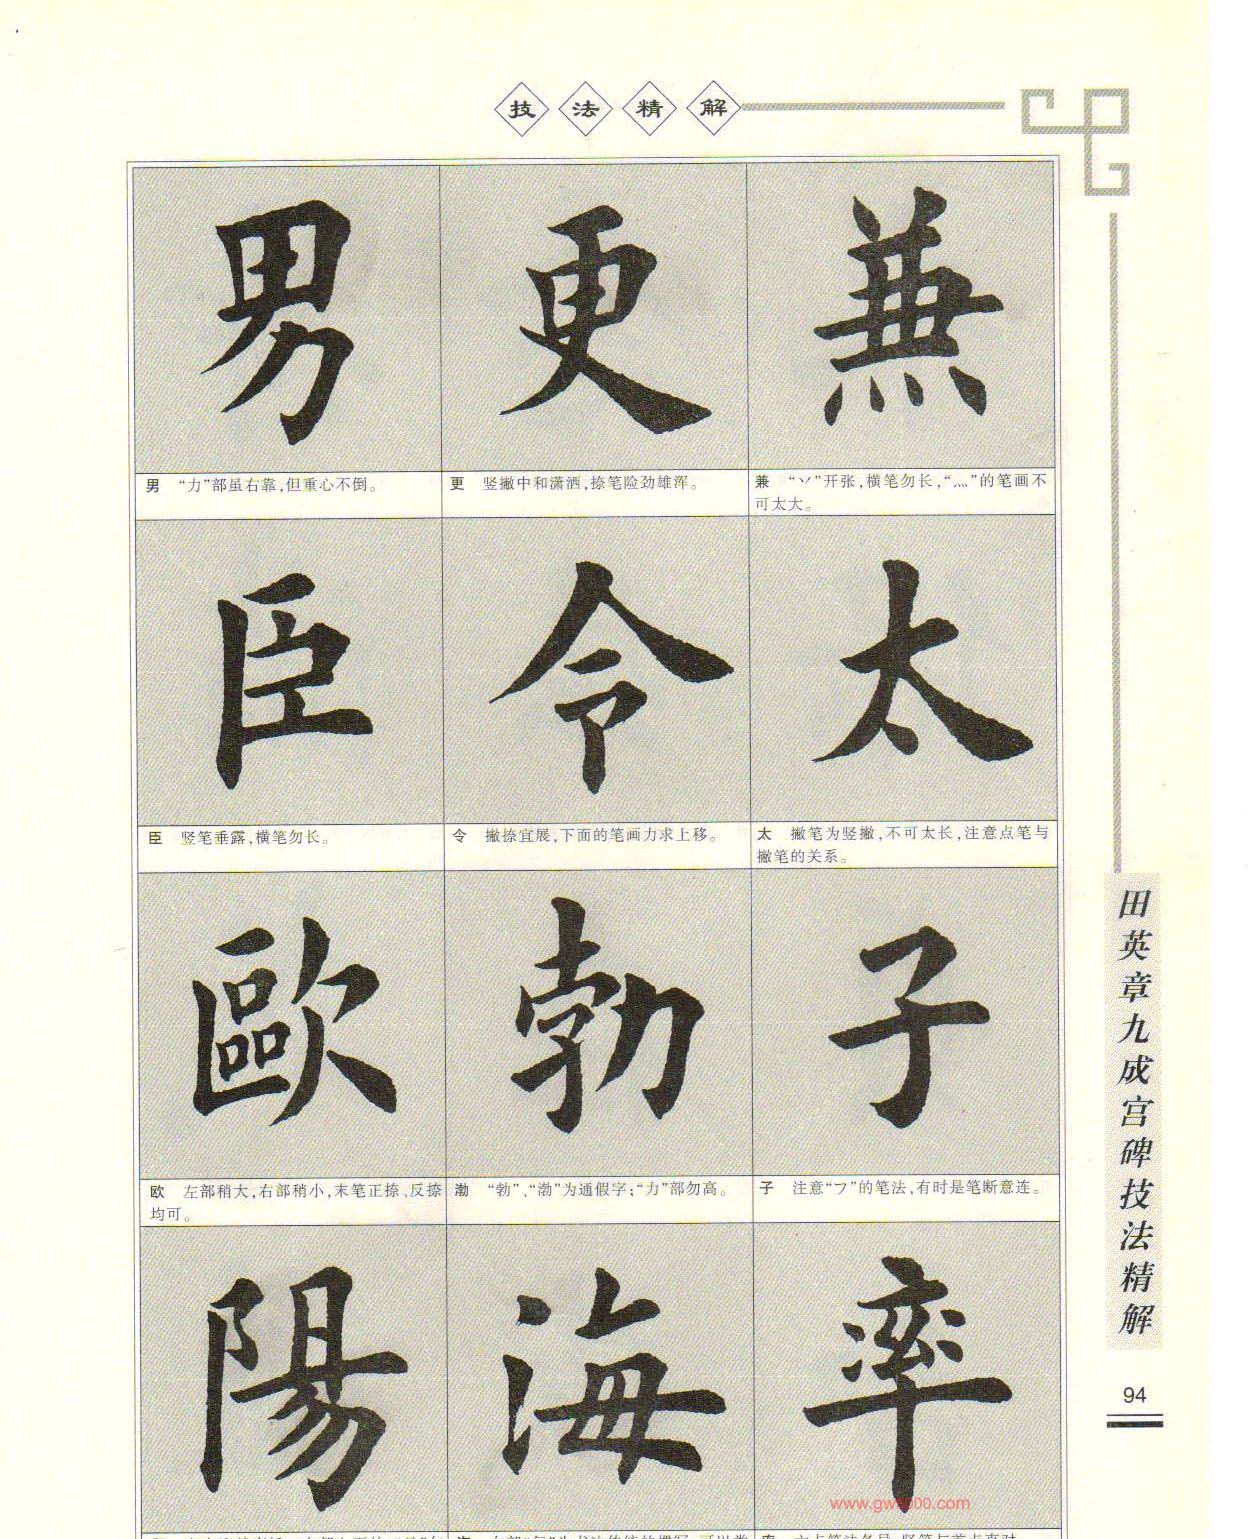 技法精解
男 更 兼
男 “力”部虽右靠,但重心不倒。
更 竖撇中和潇洒,捺笔险劲雄浑。
兼 “丷”开张,横笔勿长,“灬”的笔画不
可太大。
臣 令 太
臣 竖笔垂露,横笔勿长。
令 撇捺宜展,下面的笔画力求上移。
太 撇笔为竖撇,不可太长,注意点笔与
撇笔的关系。
歐 勃 子
欧 左部稍大,右部稍小,末笔正捺、反捺
均可。
渤 “勃”、“渤”为通假字;“力”部勿高。
子 注意“フ”的笔法,有时是笔断意连。
陽 海 率
www.gw5000.com
田英章九成宫碑技法精解
94